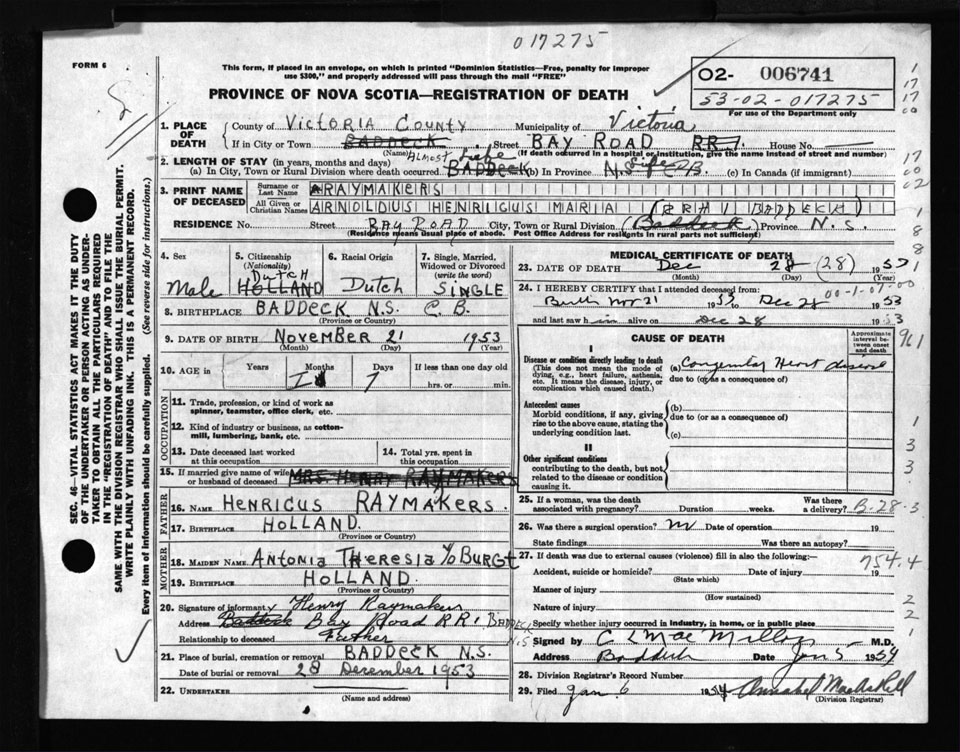 017275
FORM 6
This form, if placed in an envelope, on which is printed "Dominion Statistics—Free, penalty for improper
use $300," and properly addressed will pass through the mail "FREE"
02- 006741
53-02-017275
For use of the Department only
PROVINCE OF NOVA SCOTIA—REGISTRATION OF DEATH
SEC. 46—VITAL STATISTICS ACT MAKES IT THE DUTY
OF THE UNDERTAKER OR PERSON ACTING AS UNDER-
TAKER TO OBTAIN ALL THE PARTICULARS REQUIRED
IN THE "REGISTRATION OF DEATH" AND TO FILE THE
SAME WITH THE DIVISION REGISTRAR WHO SHALL ISSUE THE BURIAL PERMIT.
WRITE PLAINLY WITH UNFADING INK. THIS IS A PERMANENT RECORD.
Every item of information should be carefully supplied. (See reverse side for instructions.)
1. PLACE OF DEATH
County of VICTORIA COUNTY Municipality of Victoria
If in City or Town BADDECK Street BAY ROAD RR1. House No.
(Name) (If death occurred in a hospital or institution, give the name instead of street and number)
2. LENGTH OF STAY (in years, months and days) ALMOST Life
(a) In City, Town or Rural Division where death occurred BADDECK (b) In Province N.S. Life C.B. (c) In Canada (if immigrant)
3. PRINT NAME OF DECEASED
Surname or Last Name RAYMAKERS
All Given or Christian Names ARNOLDUS HENRICUS MARIA (RR#1 BADDECK)
RESIDENCE No. Street BAY ROAD City, Town or Rural Division (Baddeck) Province N.S.
(Residence means usual place of abode. Post Office Address for residents in rural parts not sufficient)
4. Sex Male
5. Citizenship (Nationality) DUTCH HOLLAND
6. Racial Origin Dutch
7. Single, Married, Widowed or Divorced (write the word) SINGLE
8. BIRTHPLACE BADDECK N.S. C.B.
(Province or Country)
9. DATE OF BIRTH November 21 1953
(Month) (Day) (Year)
10. AGE in Years Months Days If less than one day
1 7 hrs. or min.
OCCUPATION
11. Trade, profession, or kind of work as
spinner, teamster, office clerk, etc.
12. Kind of industry or business, as cotton-
mill, lumbering, bank, etc.
13. Date deceased last worked
at this occupation
14. Total yrs. spent in
this occupation
15. If married give name of wife
or husband of deceased MRS. HENRY RAYMAKERS
FATHER
16. NAME HENRICUS RAYMAKERS.
17. BIRTHPLACE HOLLAND.
(Province or Country)
MOTHER
18. MAIDEN NAME ANTONIA THERESIA v/d BURGT
19. BIRTHPLACE HOLLAND.
(Province or Country)
20. Signature of informant Henry Raymakers
Address Baddeck Bay Road RR1 BADDECK N.S
Relationship to deceased Father
21. Place of burial, cremation or removal BADDECK N.S.
Date of burial or removal 28 December 1953
22. UNDERTAKER
(Name and address)
MEDICAL CERTIFICATE OF DEATH
23. DATE OF DEATH Dec 28 (28) 1953
24. I HEREBY CERTIFY that I attended deceased from: 00-1-07-00
Birth Nov 21 1953 to Dec 28 1953
and last saw him alive on Dec 28 1953
CAUSE OF DEATH
Approximate interval between onset and death
I
Disease or condition directly leading to death
(This does not mean the mode of
dying, e.g., heart failure, asthenia,
etc. It means the disease, injury, or
complication which caused death.)
(a) Congenital Heart disease
due to (or as a consequence of)
Antecedent causes
Morbid conditions, if any, giving
rise to the above cause, stating the
underlying condition last.
(b)
due to (or as a consequence of)
(c)
II
Other significant conditions
contributing to the death, but not
related to the disease or condition
causing it.
25. If a woman, was the death
associated with pregnancy? Duration weeks. Was there
a delivery? B-28-3
26. Was there a surgical operation? No Date of operation 19
State findings Was there an autopsy?
27. If death was due to external causes (violence) fill in also the following:—
754.4
Accident, suicide or homicide? Date of injury 19
(State which)
Manner of injury
(How sustained)
Nature of injury
Specify whether injury occurred in industry, in home, or in public place
Signed by C L MacMillan M.D.
Address Baddeck Date Jan 5 1954
28. Division Registrar's Record Number
29. Filed Jan 6 1954 Annabel MacAskill
(Division Registrar)